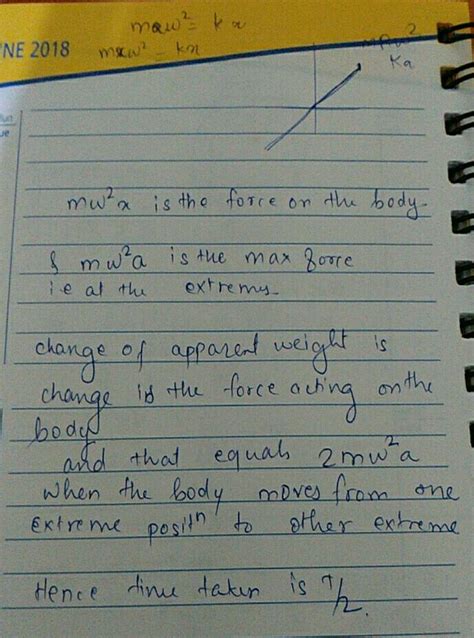 maw² = k x
NE 2018 mxw² = kx
maw²
Ka
mw²x is the force on the body
& mw²a is the max force
i.e at the extremes
change of apparent weight is
change in the force acting on the
body
and that equals 2mw²a
when the body moves from one
extreme positⁿ to other extreme
Hence time taken is T/2.